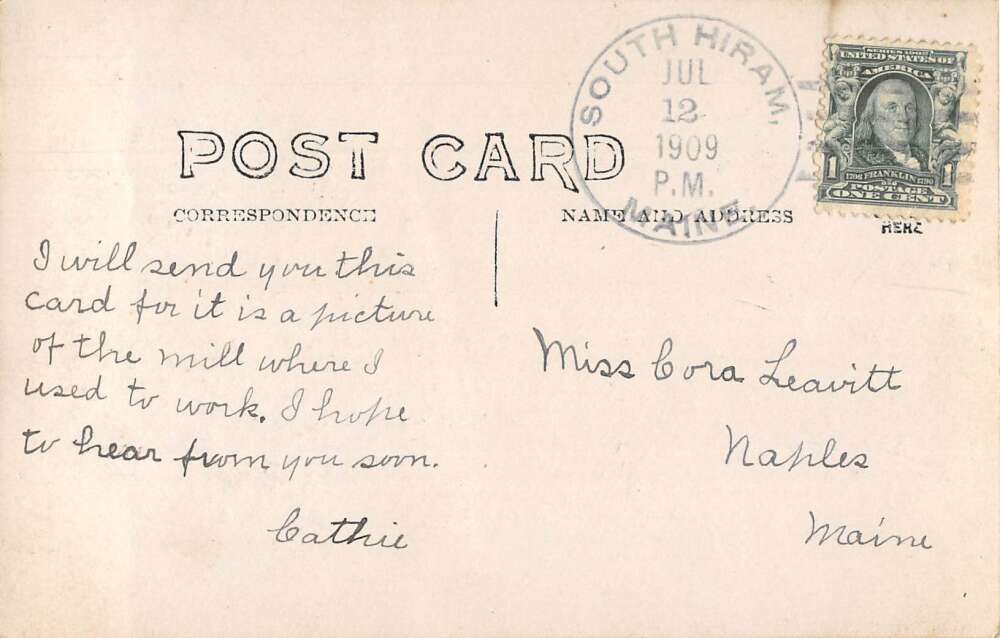 POST CARD
CORRESPONDENCE
NAME AND ADDRESS
HERE
SOUTH HIRAM,
JUL
12
1909
P.M.
MAINE.
SERIES 1902
UNITED STATES OF
AMERICA
1 1
1706 FRANKLIN 1790
POSTAGE
ONE CENT
I will send you this
card for it is a picture
of the mill where I
used to work. I hope
to hear from you soon.
Cathie
Miss Cora Leavitt
Naples
Maine